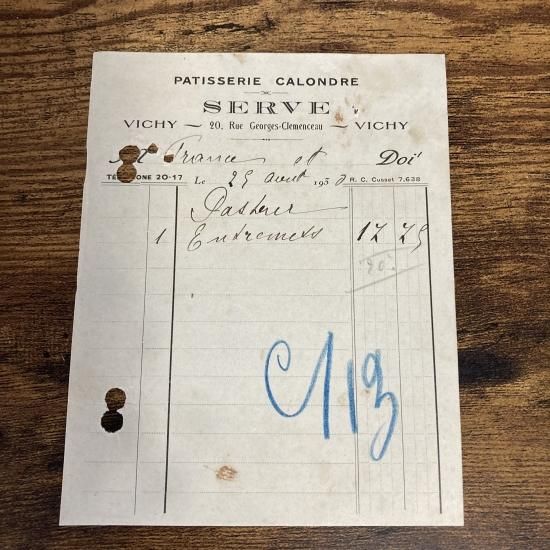 PATISSERIE CALONDRE
SERVE
VICHY — 20, Rue Georges-Clemenceau — VICHY
France et Doit
TELEPHONE 20-17 Le 25 Août 193 R. C. Cusset 7.638
1 Entremets 17 75